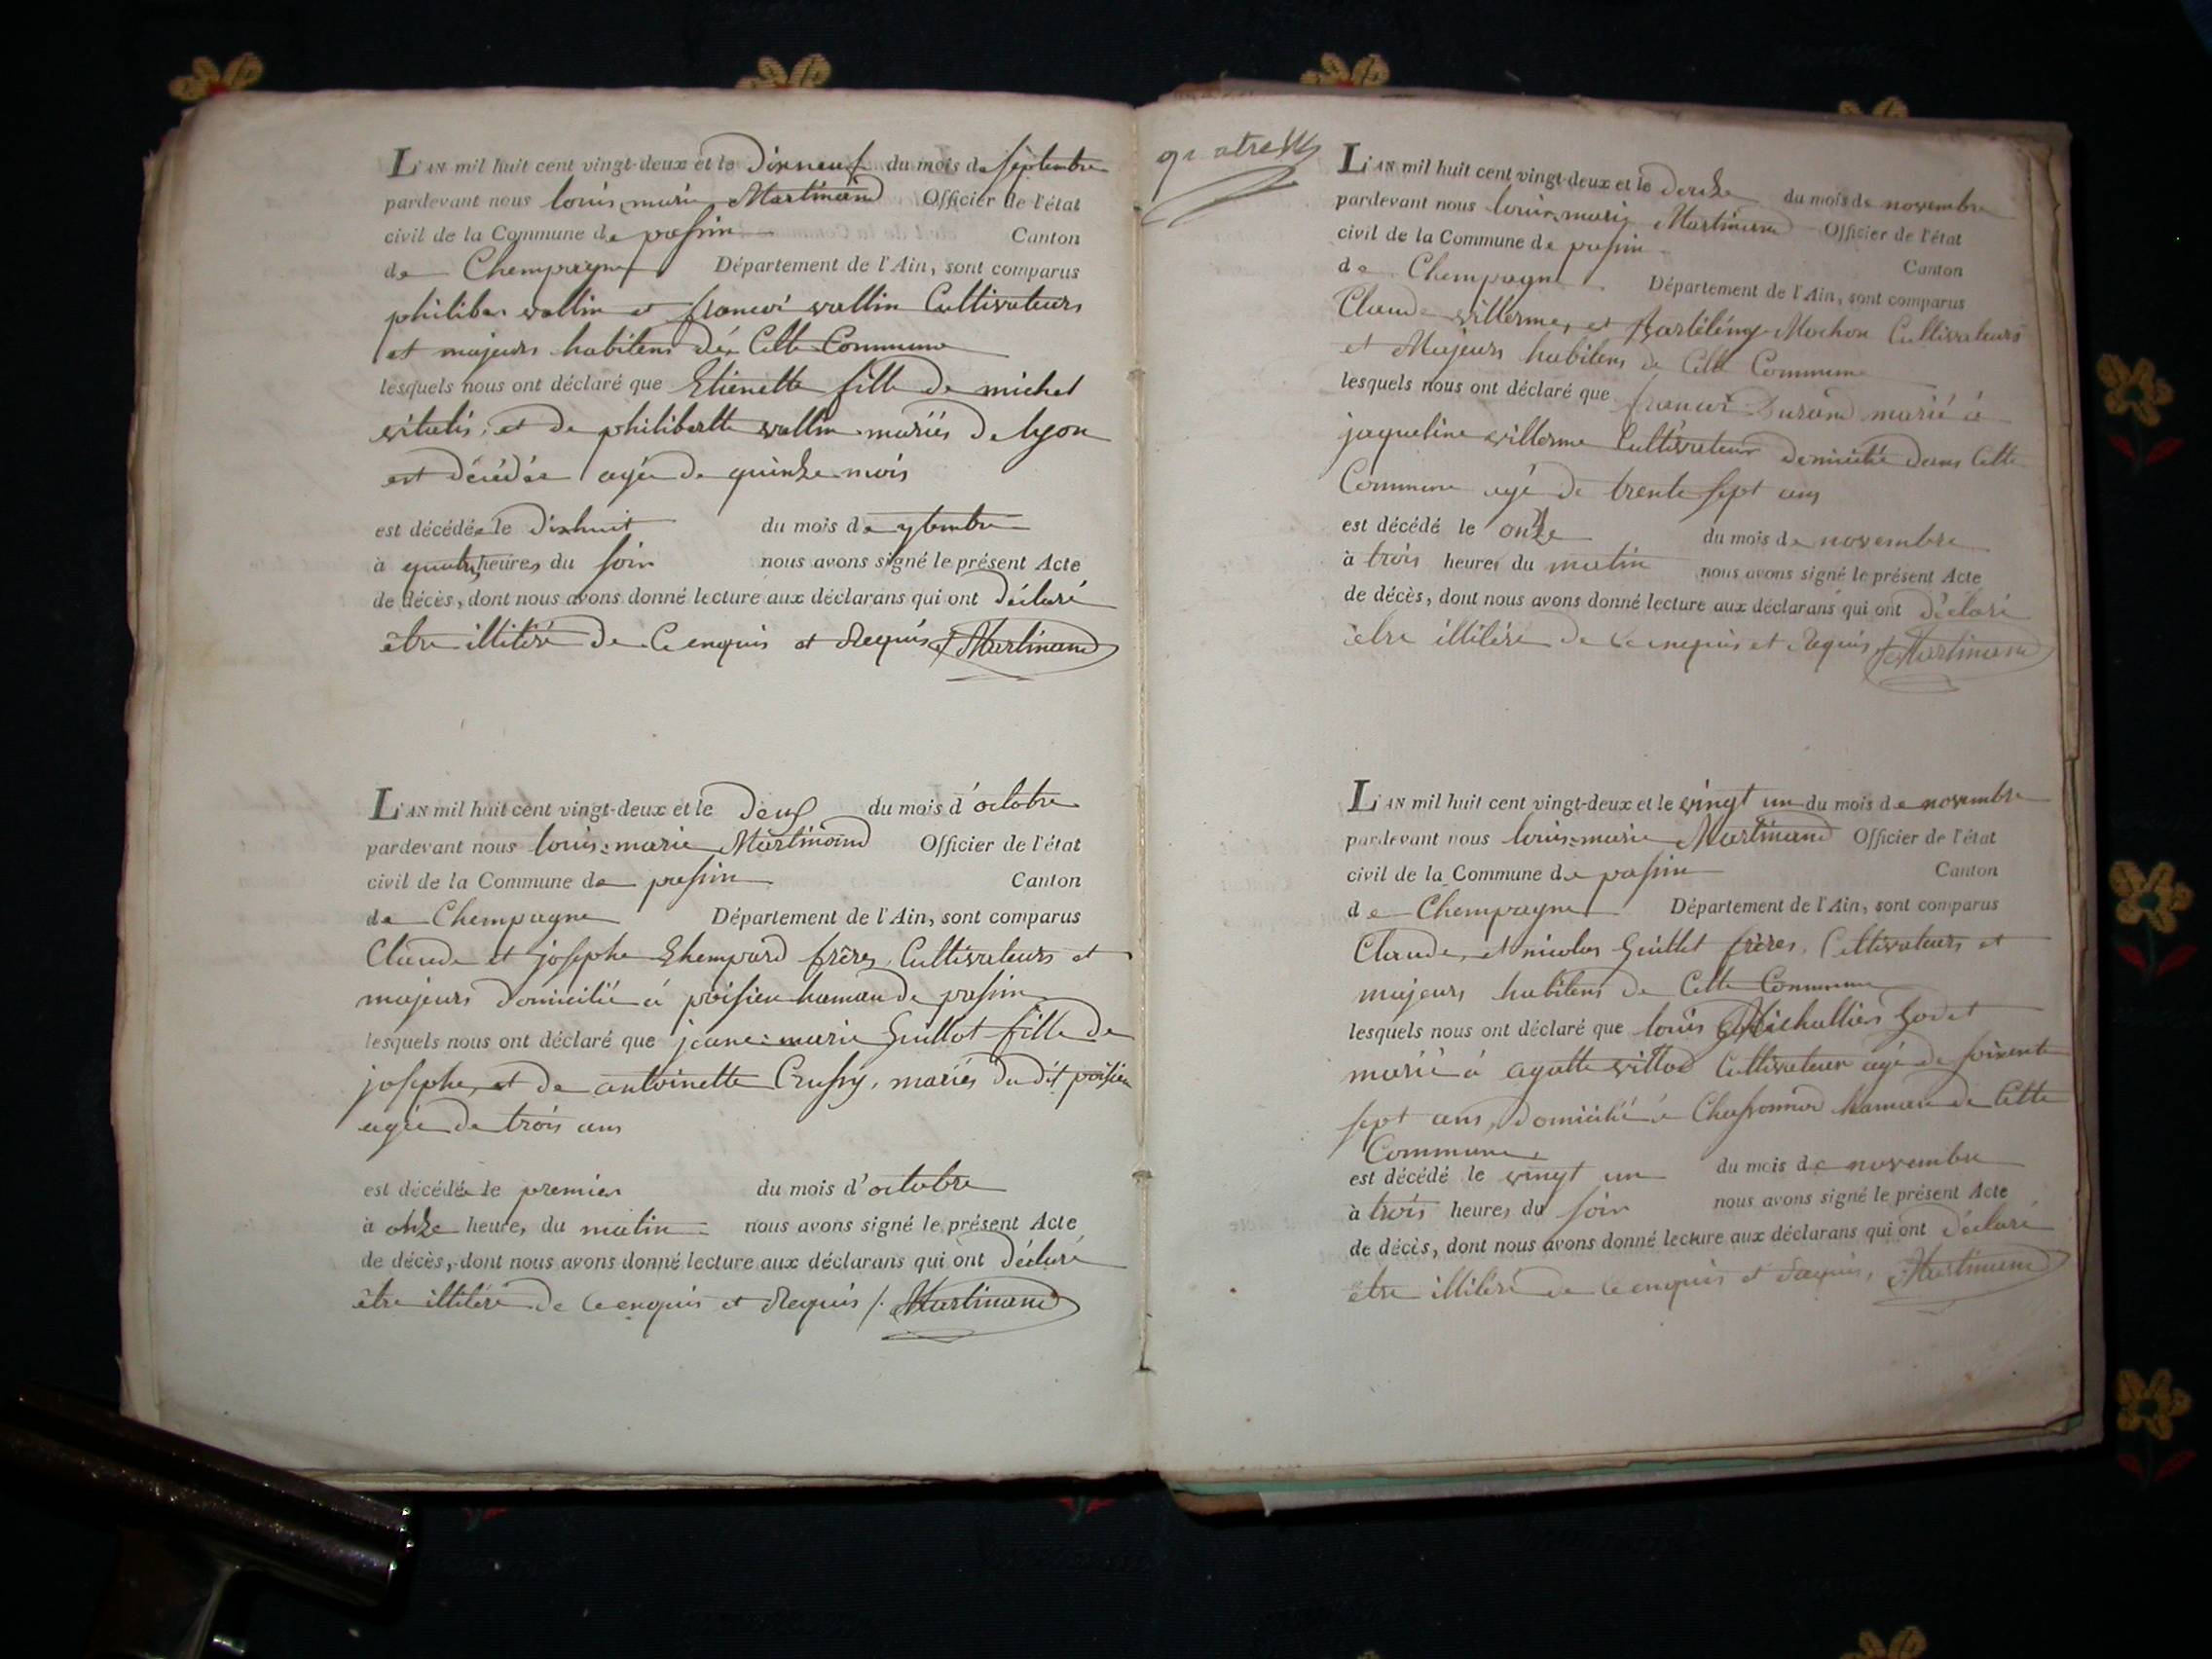 L'AN mil huit cent vingt-deux et le dixneuf du mois de septembre
pardevant nous louis marie Martinand Officier de l'état
civil de la Commune de passin Canton
de Champagne Département de l'Ain, sont comparus
philiber vallin et francoi vallin Cultivateurs
et majeurs habitens de Cette Commune
lesquels nous ont déclaré que Etienette fille de michel
vitalis, et de philibertte vallin mariés de lyon
est décédée agée de quinze mois
est décédée le dixhuit du mois de 7bembre
à quatre heures du soir nous avons signé le présent Acte
de décès, dont nous avons donné lecture aux déclarans qui ont déclaré
être illitéré de Ce enquis et Requis Martinand
L'AN mil huit cent vingt-deux et le deux du mois d'octobre
pardevant nous louis marie Martinand Officier de l'état
civil de la Commune de passin Canton
de Champagne Département de l'Ain, sont comparus
Claude et josephe frères, Cultivateurs et
majeurs domicilié à poisieu hamau de passin
lesquels nous ont déclaré que jeane marie Guillot fille de
josephe, et de antoinette mariés du dit poisieu
agée de trois ans
est décédée le premier du mois d'octobre
à onze heures du matin nous avons signé le présent Acte
de décès, dont nous avons donné lecture aux déclarans qui ont déclaré
être illitéré de Ce enquis et Requis /. Martinand
quatre
L'AN mil huit cent vingt-deux et le douze du mois de novembre
pardevant nous louis marie Martinand Officier de l'état
civil de la Commune de passin
de Champagne Canton
Département de l'Ain, sont comparus
Claude villerme, et Bartélémy Mochon Cultivateurs
et Majeurs habitens de Cette Commune
lesquels nous ont déclaré que francoi Durand marié à
jaqueline villerme Cultivateur domicilié dans Cette
Commune agé de trente sept ans
est décédé le onze du mois de novembre
à trois heures du matin nous avons signé le présent Acte
de décès, dont nous avons donné lecture aux déclarans qui ont déclaré
être illitéré de Ce enquis et Requis Martinand
L'AN mil huit cent vingt-deux et le vingt un du mois de novembre
pardevant nous louis marie Martinand Officier de l'état
civil de la Commune de passin Canton
de Champagne Département de l'Ain, sont comparus
Claude, et nicolas Guillet frères, Cultivateurs et
majeurs habitens de Cette Commune
lesquels nous ont déclaré que louis Michallier Godet
marié à agatte villod Cultivateur agé de soixente
sept ans, domicilié à Chassonnod hamau de Cette
Commune
est décédé le vingt un du mois de novembre
à trois heures du soir nous avons signé le présent Acte
de décès, dont nous avons donné lecture aux déclarans qui ont déclaré
être illitéré de Ce enquis et Requis, Martinand